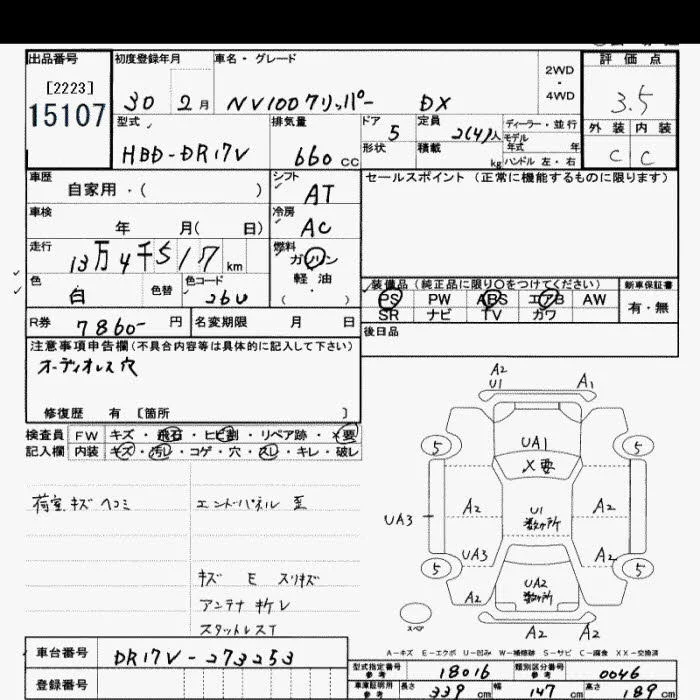 出品番号 初度登録年月 車名・グレード 2WD ・ 4WD 評価点
[2223]
15107 30 2月 NV100クリッパー DX 3.5
型式 排気量 ドア 定員 ディーラー・並行 外装 内装
HBD-DR17V 660cc 5 2(4)人 モデル年式 年
形状 積載 kg ハンドル 左・右 C C
車歴 シフト セールスポイント (正常に機能するものに限ります)
自家用・( ) AT
車検 冷房
年 月( 日) AC
走行 燃料
13万4千517km ガソリン
色 色替 色コード 軽油・
白 26U ( )
装備品(純正品に限り○をつけてください) 新車保証書
PS PW ABS エアB AW 有・無
SR ナビ TV カワ
R券 7860- 円 名変期限 月 日 後日品
注意事項申告欄(不具合内容等は具体的に記入して下さい)
オーディオレス穴
修復歴 有 [箇所 ]
検査員 FW キズ・飛石・ヒビ割・リペア跡・X要
記入欄 内装 キズ・汚レ・コゲ・穴・スレ・キレ・破レ
荷室キズヘコミ エンドパネル 歪
キズ E スリキズ
アンテナ オケレ
スタットレスT
A2
U1 A1
5 UA1 5
X要
A2 U1 A2
数ヶ所
UA3
UA3 A2
5 UA2 5
数ヶ所
A2 A2
スペア A2 A2
A-キズ E-エクボ U-凹み W-補修跡 S-サビ C-腐食 XX-交換済
車台番号 DR17V-273253
登録番号
型式指定番号 参考 18016 類別区分番号 参考 0046
車庫証明用 参考 長さ 339cm 幅 147cm 高さ 189cm